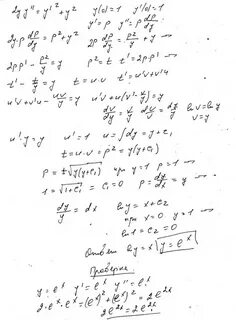 2y y'' = y'² + y²   y(0) = 1   y'(0) = 1
y' = p   y'' = p dp/dy
2y·p dp/dy = p² + y²   2p dp/dy = p²/y + y
2pp' - p²/y = y   p² = t   t' = 2pp'
t' - t/y = y   t = u·v   t' = u'v + v'u
u'v + v'u - uv/y = y   u'v + u(v' - v/y) = y
dv/dy = v/y   dv/v = dy/y   ln v = ln y
v = y
u'·y = y   u' = 1   u = ∫dy = y + c₁
t = u·v = p² = y(y + c₁)
p = ±√y(y + c₁)   при y = 1 p = 1
1 = √1 + c₁   c₁ = 0   p = dy/dx = y
dy/y = dx   ln y = x + c₂
при x = 0   y = 1
ln 1 = c₂ = 0
Ответ ln y = x   y = eˣ
Проверка
y = eˣ   y' = eˣ   y'' = eˣ
2·eˣ·eˣ = (eˣ)² + (eˣ)² = 2e²ˣ
2e²ˣ = 2e²ˣ